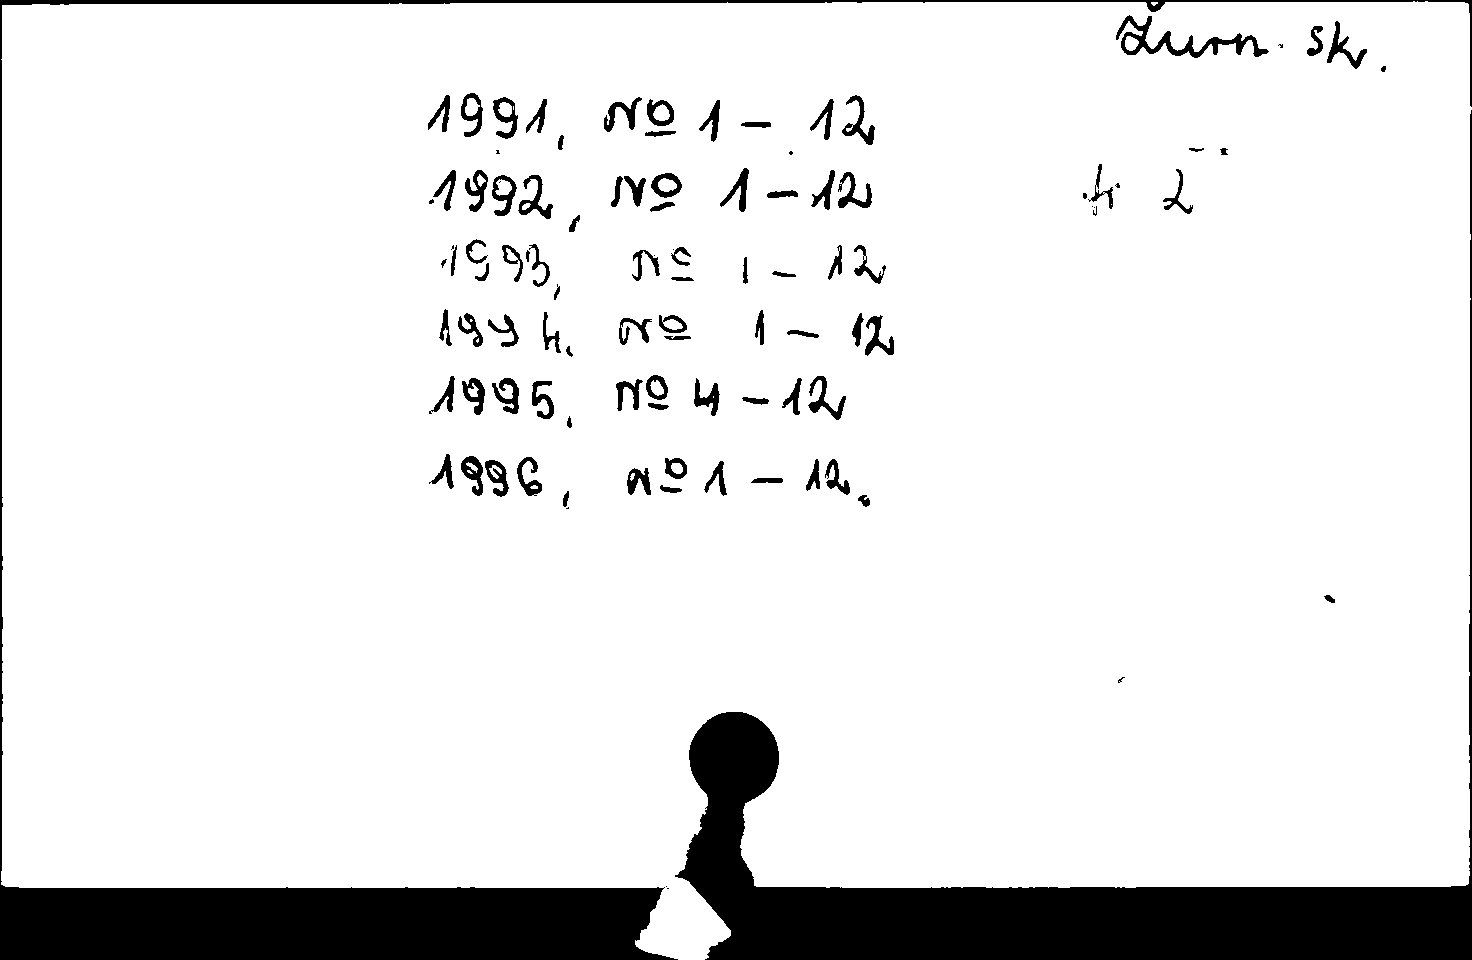 Žurn. sk.
1991, № 1 – 12
1992, № 1 – 12
1993, № 1 – 12
1994, № 1 – 12
1995, № 4 – 12
1996, № 1 – 12.